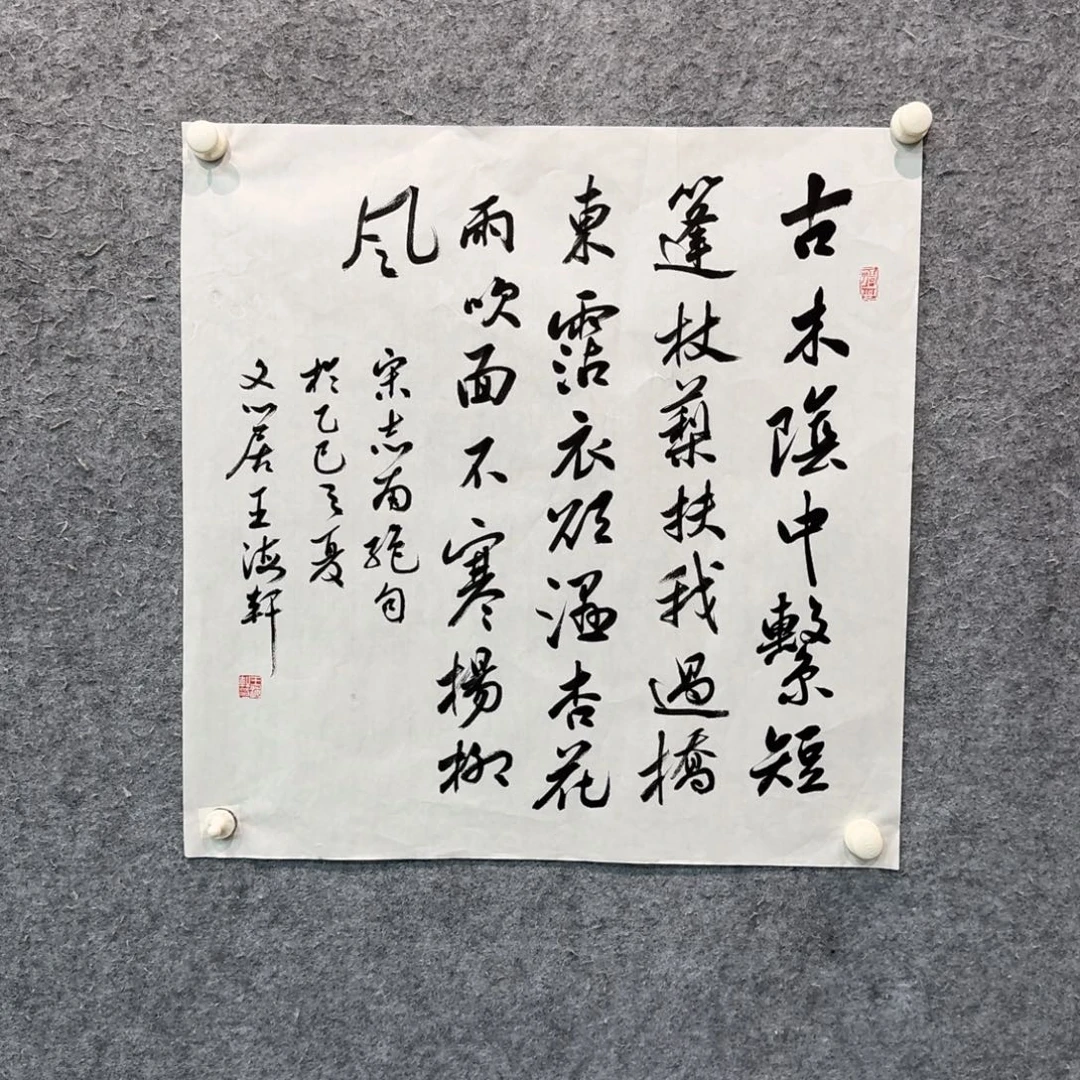 古木陰中繫短
篷杖藜扶我過橋
東霑衣欲濕杏花
雨吹面不寒楊柳
風
宋志南絕句
於乙巳之夏
文心居王海軒